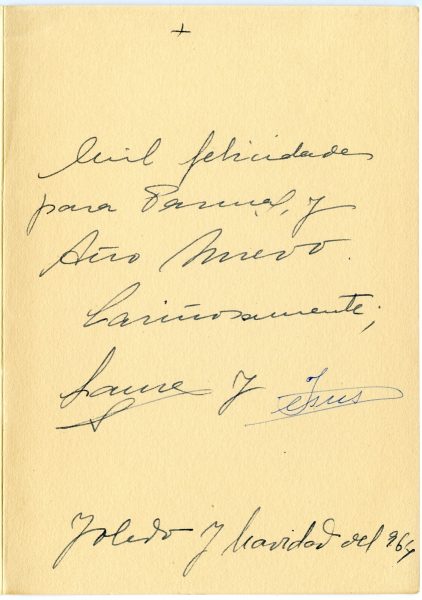 +
Mil felicidades
para Pascuas, y
Año Nuevo.
Cariñosamente,
Laura y Jesus
Toledo y Navidad del 964